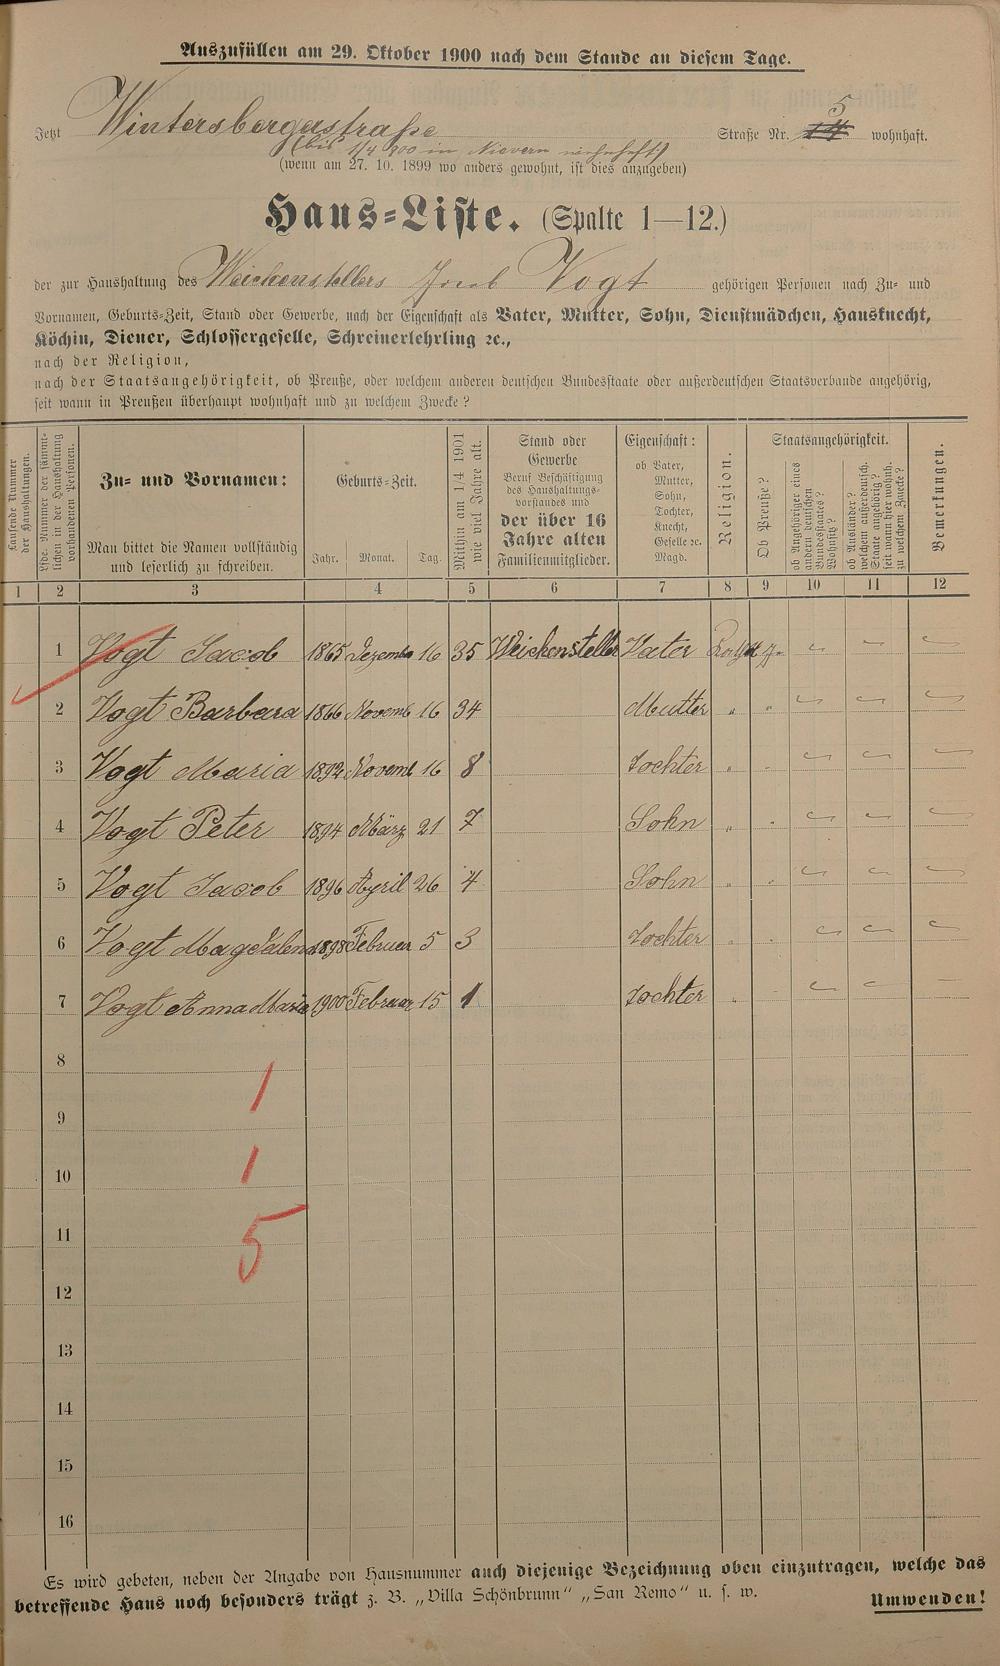 Auszufüllen am 29. Oktober 1900 nach dem Stande an diesem Tage.
Jetzt Wintersbergerstraße Straße Nr. 5 wohnhaft.
(bis 1/4 900 in Nievern wohnhaft)
(wenn am 27. 10. 1899 wo anders gewohnt, ist dies anzugeben)
Haus-Liste. (Spalte 1—12.)
der zur Haushaltung des Weichenstellers Jacob Vogt gehörigen Personen nach Zu- und
Vornamen, Geburts-Zeit, Stand oder Gewerbe, nach der Eigenschaft als Vater, Mutter, Sohn, Dienstmädchen, Hausknecht,
Köchin, Diener, Schlossergeselle, Schreinerlehrling ꝛc.,
nach der Religion,
nach der Staatsangehörigkeit, ob Preuße, oder welchem anderen deutschen Bundesstaate oder außerdeutschen Staatsverbande angehörig,
seit wann in Preußen überhaupt wohnhaft und zu welchem Zwecke?
Laufende Nummer der Haushaltungen.
Lfde. Nummer der sämmtlichen in der Haushaltung vorhandenen Personen.
Zu- und Vornamen:
Man bittet die Namen vollständig
und leserlich zu schreiben.
Geburts-Zeit.
Jahr. Monat. Tag.
Mithin am 1/4 1901 wie viel Jahre alt.
Stand oder
Gewerbe
Beruf Beschäftigung
des Haushaltungs-
vorstandes und
der über 16
Jahre alten
Familienmitglieder.
Eigenschaft:
ob Vater,
Mutter,
Sohn,
Tochter,
Knecht,
Geselle ꝛc.
Magd.
Religion.
Staatsangehörigkeit.
Ob Preuße?
ob Angehöriger eines andern deutschen Bundesstaates? Wohnsitz?
ob Ausländer? welchem außerdeutsch. Staate angehörig? seit wann hier wohnh. zu welchem Zwecke?
Bemerkungen.
1 2 3 4 5 6 7 8 9 10 11 12
1 Vogt Jacob 1865 Dezember 16 35 Weichensteller Vater
2 Vogt Barbara 1866 Novemb 16 34 Mutter " "
3 Vogt Maria 1892 Novemb 16 8 Tochter " "
4 Vogt Peter 1894 März 21 7 Sohn " "
5 Vogt Jacob 1896 April 26 4 Sohn " "
6 Vogt Magdalena 1898 Februar 5 3 Tochter " "
7 Vogt Anna Maria 1900 Februar 15 1 Tochter "
8
1
9
10 1
11 5
12
13
14
15
16
Es wird gebeten, neben der Angabe von Hausnummer auch diejenige Bezeichnung oben einzutragen, welche das
betreffende Haus noch besonders trägt z. B. „Villa Schönbrunn" „San Remo" u. s. w. Umwenden!